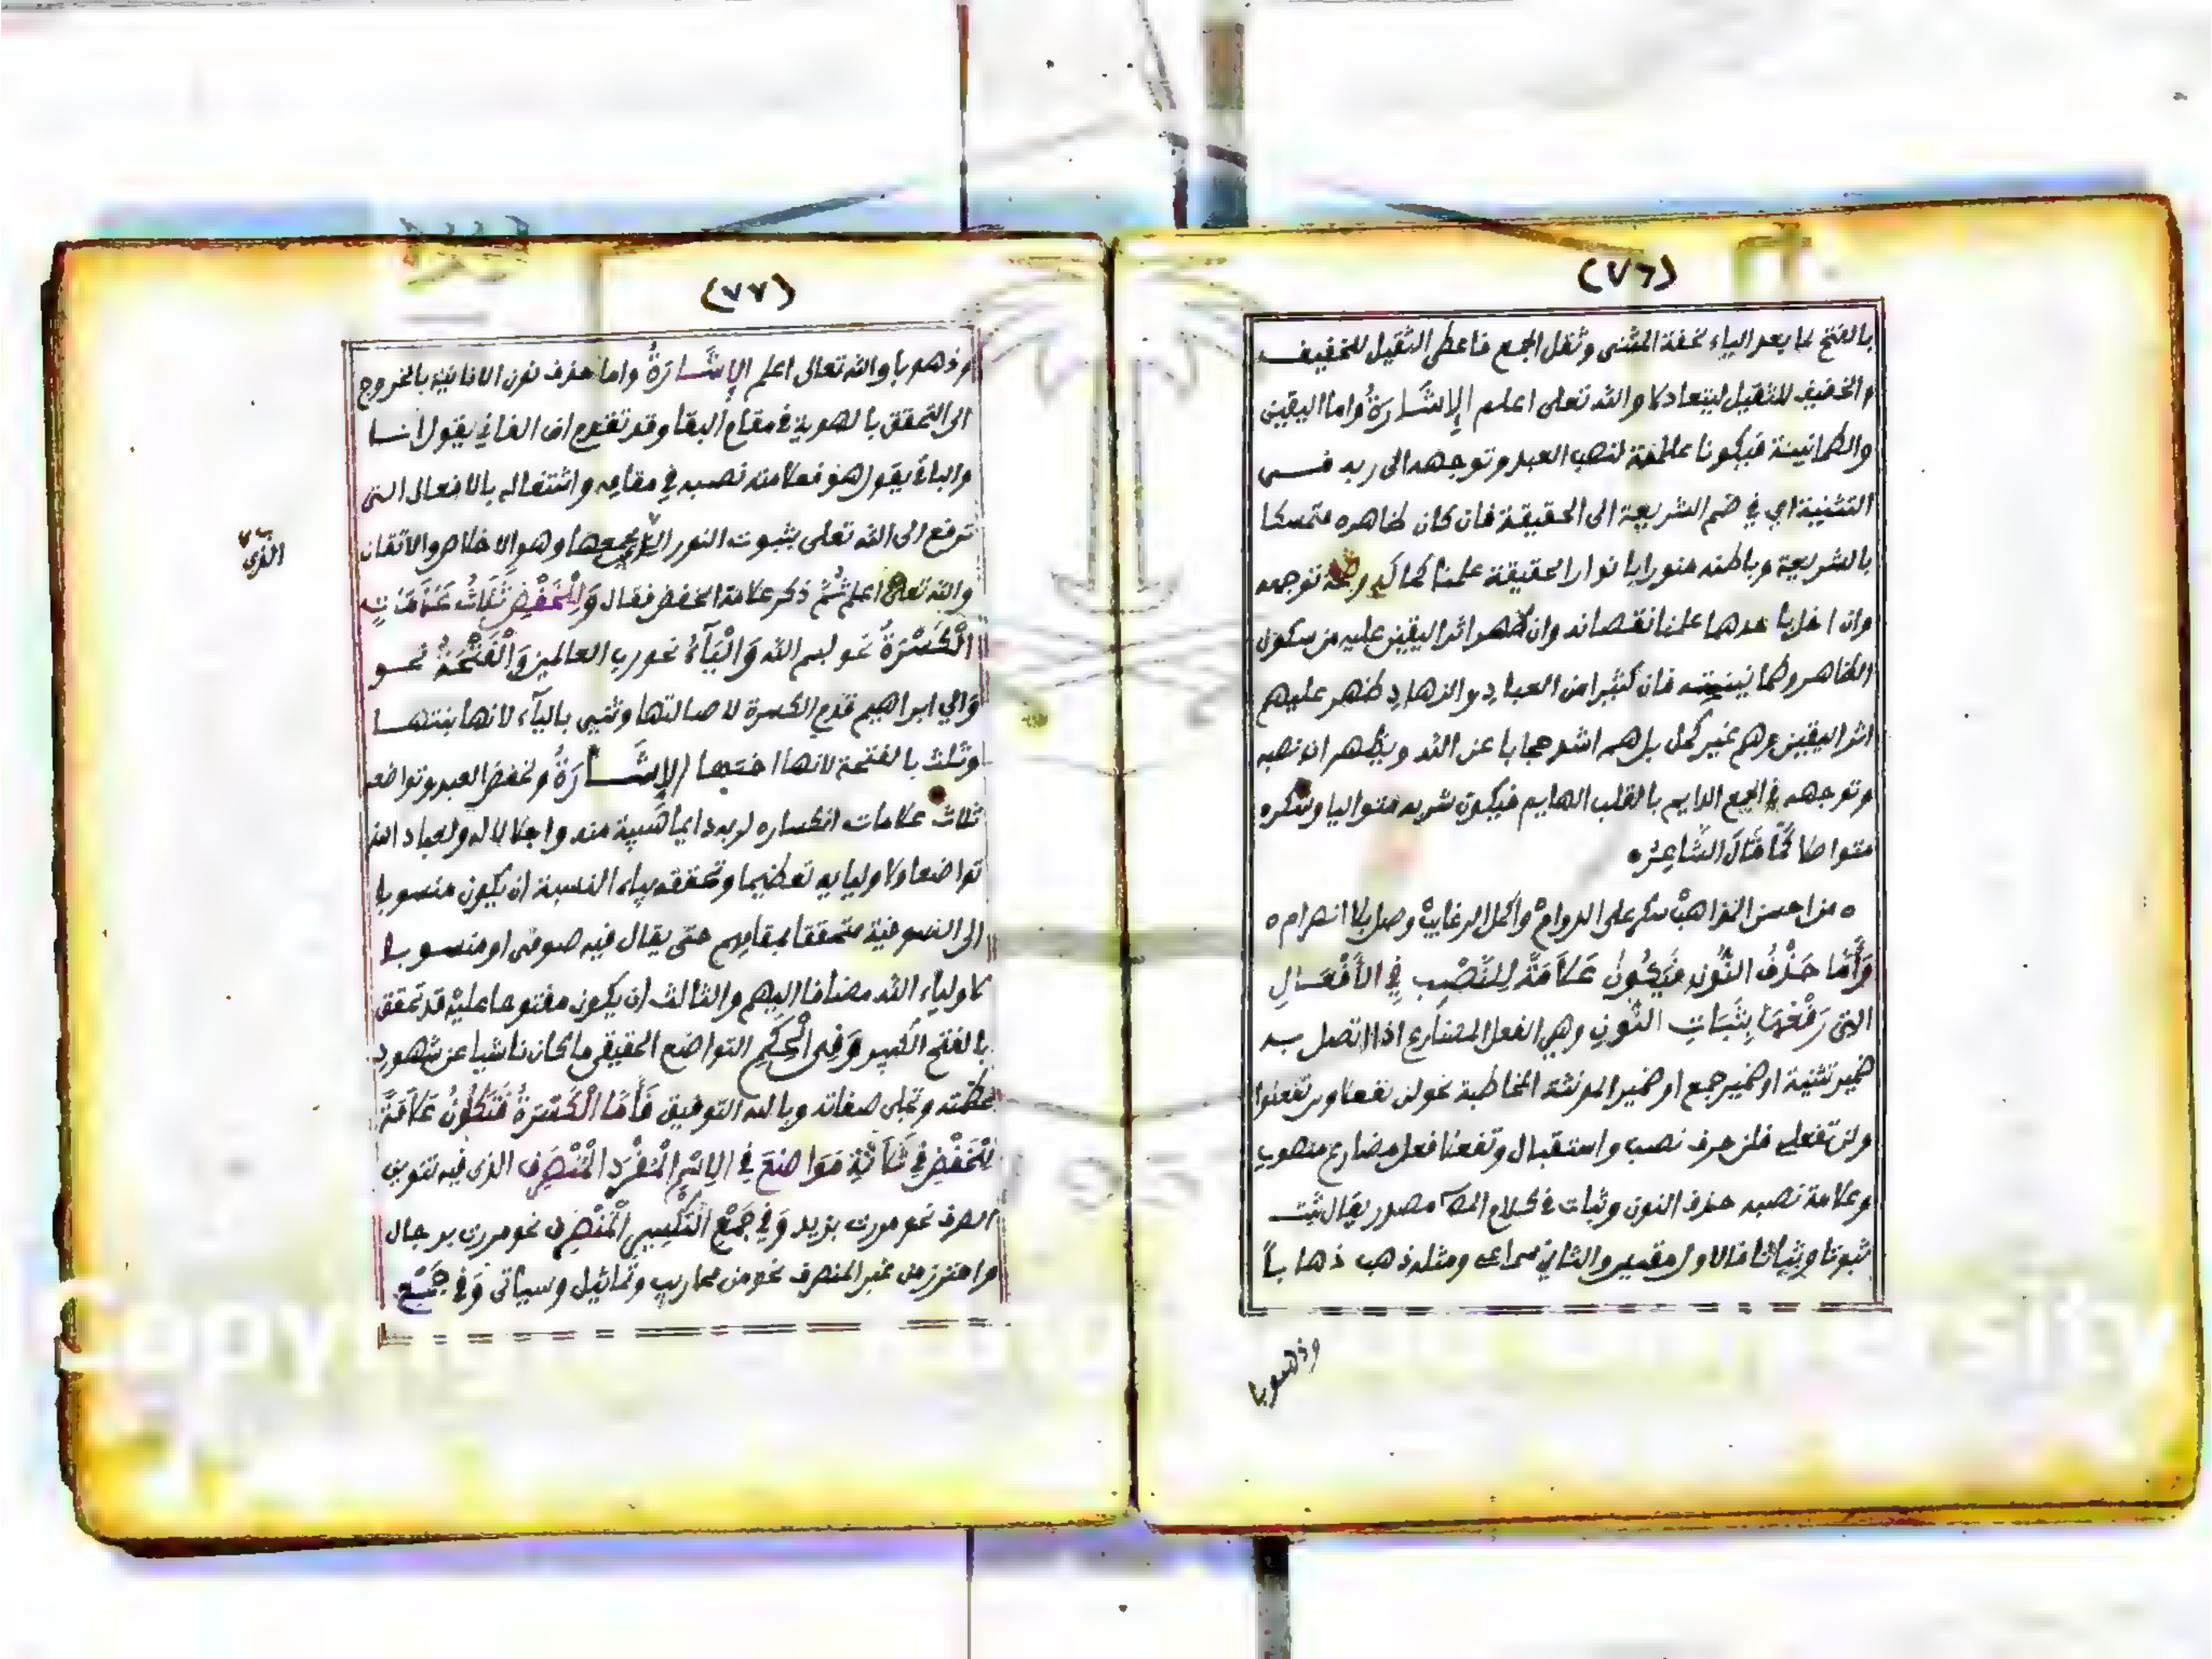 (٧٦)
بالفتح لما بعد الياء لخفة المثنى وثقل الجمع فاعطى الثقيل للخفيف
والخفيف للثقيل ليتعادلا والله تعلى اعلم الإشَارَةُ واما اليقين
والطمانينة فيكونا علامة لنصب العبد وتوجهه الى ربه فى
التثنية اي في ضم الشريعة الى الحقيقة فان كان ظاهره متمسكا
بالشريعة وباطنه منورا بانوار الحقيقة علمنا كماله وصحة توجهه
وان اخل باحدهما علمنا نقصانه وان ظهر اثر اليقين عليه من سكون
الظاهر وطمانينته فان كثيرا من العباد والزهاد ظهر عليهم
اثر اليقين وهم غير كمل بل هم اشد حجابا عن الله ويظهر ان نصبه
وتوجهه في الجمع الدايم بالقلب الهايم فيكون شربه متواليا وسكره
متواصلا كَمَا قَالَ الشَّاعِرُ
من احسن المذاهب سكر على الدوام واكمل الرغايب وصل بلا انصرام
وَأَمَّا حَذْفُ النُّونِ فَيَكُونُ عَلَامَةً لِلنَّصْبِ فِي الأَفْعَالِ
التى رَفْعُهَا بِثَبَاتِ النُّونِ وهي الفعل المضارع اذا اتصل به
ضمير تثنية او ضمير جمع او ضمير المونثة المخاطبة نحو لن تفعلا ولن تفعلوا
ولن تفعلي فلن حرف نصب واستقبال وتفعلا فعل مضارع منصوب
وعلامة نصبه حذف النون وثبات في كلام المص مصدر يقال ثبت
ثبوتا وثباتا فالاول مقيس والثاني سماعى ومثله ذهب ذهاباً
وذهوبا
(٧٧)
وذهوبا والله تعالى اعلم الإِشَارَةُ واما حذف نون الانانية بالخروج
الى التحقق بالهوية في مقام البقا وقد تقدم ان الفاني يقول انا
والباقي يقول هو فعلامته نصبه في مقامه واشتغاله بالافعال التى
ترفع الى الله تعلى بثبوت النور الذي يجمعها وهو الاخلاص والاتقان
الذى
والله تعلى اعلم ثُمَّ ذكر علامة الخفض فقال وَلِلْخَفْضِ ثَلَاثُ عَلَامَاتٍ
الْكَسْرَةُ نحو بسم الله وَالْيَآءُ نحو رب العالمين وَالْفَتْحَةُ نحو
والي ابراهيم قدم الكسرة لاصالتها وثنى بالياء لانها بنتها
وثلث بالفتحة لانها اختها الإِشَارَةُ ولخفض العبد وتواضعه
ثلاث علامات انكساره لربه دايما هَيبة منه واجلالا له ولعباد الله
تواضعا ولاوليايه تعظيما وتحققه بياء النسبة ان يكون منسوبا
الى الصوفية متحققا بمقامهم حتى يقال فيه صوفى او منسوبا
لاولياء الله مضافا اليهم والثالث ان يكون مفتوحا عليه قد تحقق
بالفتح الكبير وَفِى الْحِكَمِ التواضع الحقيقى ما كان ناشيا عن شهود
عظمته وتجلى صفاته وبالله التوفيق فَأَمَّا الْكَسْرَةُ فَتَكُونُ عَلَامَةً
لِلْخَفْضِ فِي ثَلَاثَةِ مَوَاضِعَ فِي الاِسْمِ الْمُفْرَدِ الْمُنْصَرِفِ الذى فيه تنوين
الصرف نحو مررت بزيد وَفِي جَمْعِ التَّكْسِيرِ الْمُنْصَرِفِ نحو مررت برجال
واحترز من غير المنصرف نحو من محاريب وتماثيل وسياتى وَفِي جَمْعِ